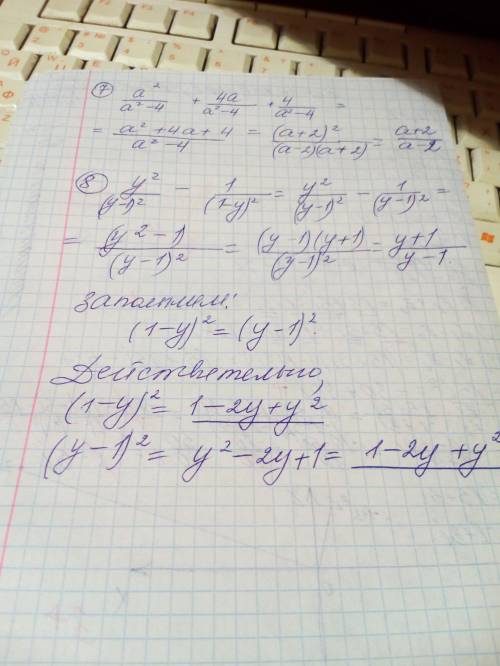 ⑦ a²/(a²-4) + 4a/(a²-4) + 4/(a²-4) =
= (a²+4a+4)/(a²-4) = (a+2)²/((a-2)(a+2)) = (a+2)/(a-2)
⑧ y²/(y-1)² - 1/(1-y)² = y²/(y-1)² - 1/(y-1)² =
= (y²-1)/(y-1)² = (y-1)(y+1)/(y-1)² = (y+1)/(y-1).
Запомним:
(1-y)² = (y-1)².
Действительно,
(1-y)² = 1-2y+y²
(y-1)² = y²-2y+1 = 1-2y+y²